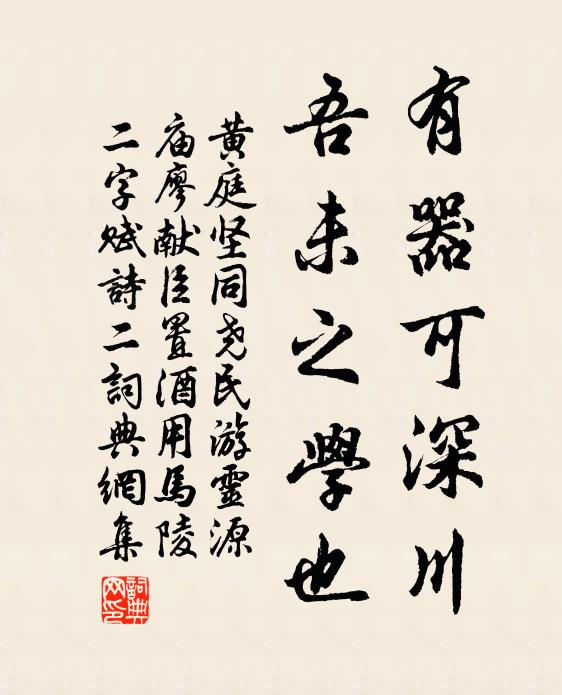 有器可深川
吾未之學也
黄庭坚同尧民游靈源
庙廖献臣置酒用馬陵
二字赋詩二詞典網集
詞典
网印